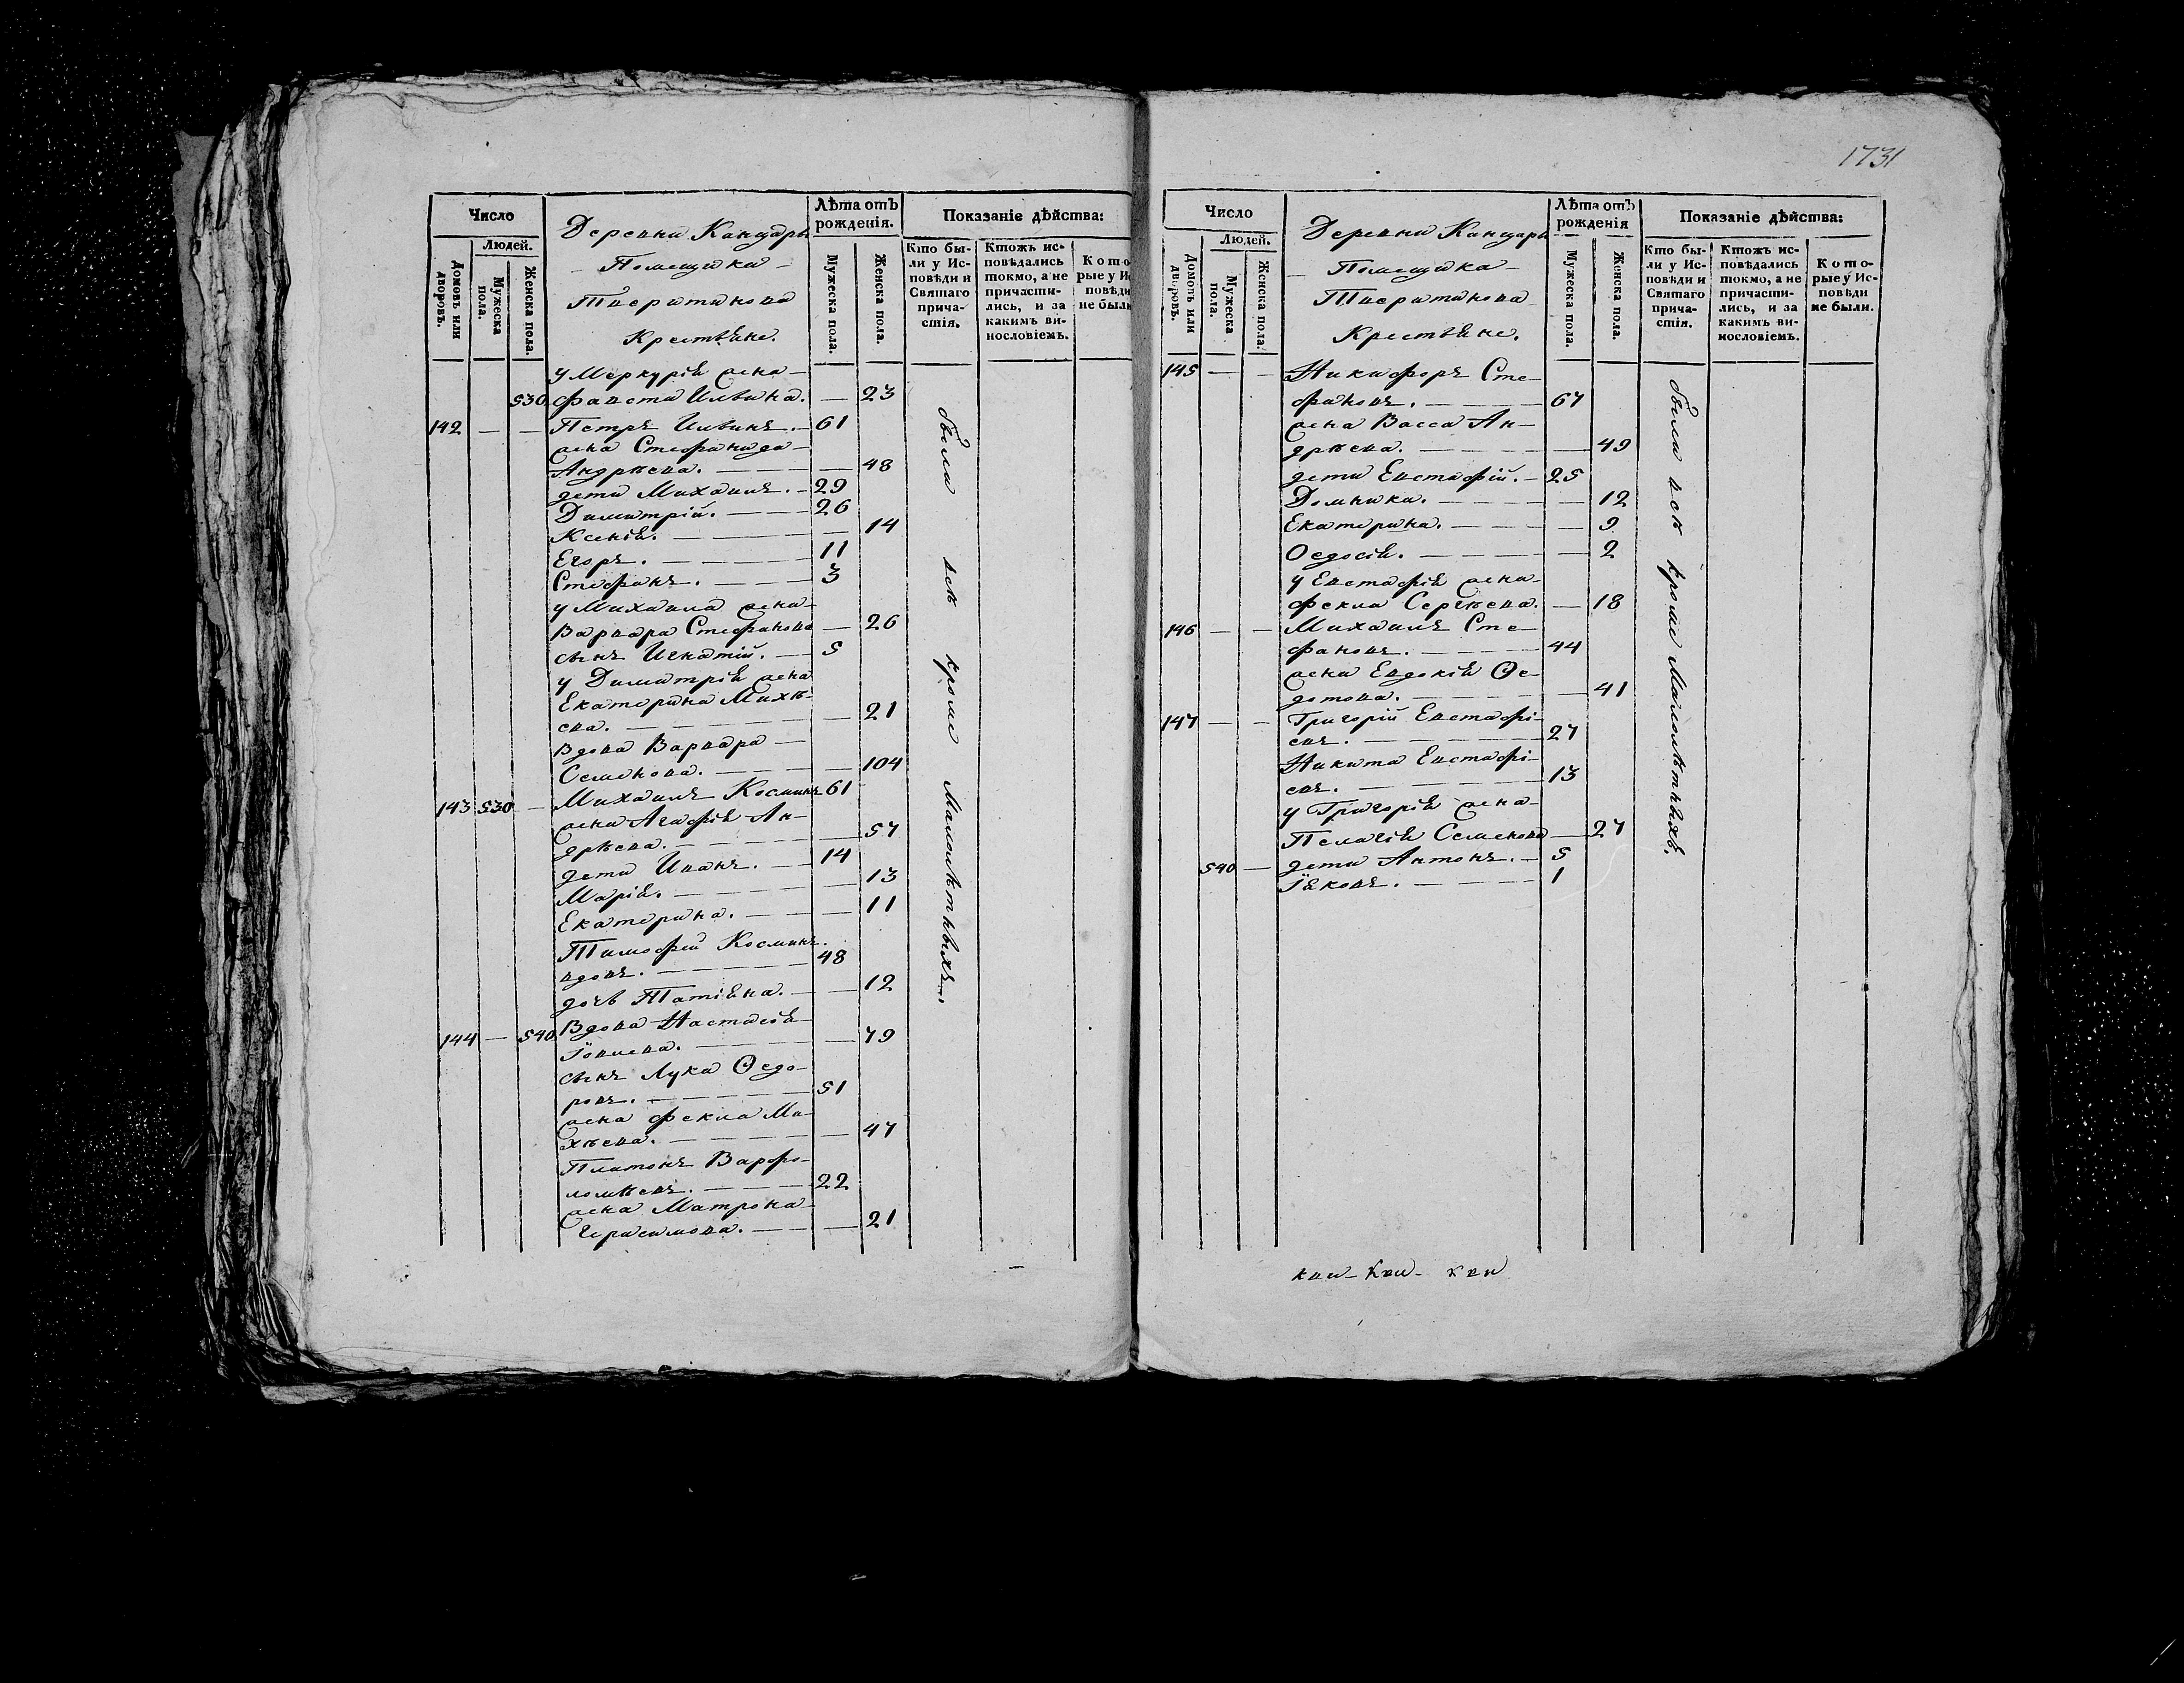 Число
Людей.
Домовъ или дворовъ.
Мужеска пола.
Женска пола.
Деревни Канцеры
Помещика
Тверитинова
Крестьяне.
Лѣта отъ рожденія.
Мужеска пола.
Женска пола.
Показаніе дѣйства:
Кто бы-
ли у Ис-
повѣди и
Святаго
прича-
стія.
Ктожъ ис-
повѣдались
токмо, а не
причасти-
лись, и за
какимъ ви-
нословіемъ.
Кото
рые у Ис
повѣди
не были
у Меркурія жена
530 Фавста Ильина. — 23
142 — — Петръ Ильинъ. — 61
жена Стефанида
Андрѣева. — 48
дети Михаилъ. — 29
Димитрій. — 26
Ксенія. — 14
Егоръ. — 11
Стефанъ. — 3
у Михаила жена
Варвара Стефанова — 26
сынъ Игнатій. — 5
у Димитрія жена
Екатерина Михѣ-
ева. — 21
Вдова Варвара
Семенова. — 104
143 530 — Михаилъ Косминъ 61
жена Агафія Ан-
дрѣева. — 57
дети Иванъ. — 14
Марія. — 13
Екатерина. — 11
Тимофей Косминъ
вдовъ. — 48
дочь Татіяна. — 12
144 — 540 Вдова Настасія
Іовлева. — 79
сынъ Лука Ѳедо-
ровъ. — 51
жена Фекла Ми-
хѣева. — 47
Платонъ Варфо-
ломѣевъ. — 22
жена Матрона
Герасимова. — 21
были всѣ кроме Малолѣтныхъ.
1731
Число
Людей.
Домовъ или дворовъ.
Мужеска пола.
Женска пола.
Деревни Канцеры
Помещика
Тверитинова
Крестьяне.
Лѣта отъ рожденія
Мужеска пола.
Женска пола.
Показаніе дѣйства:
Кто бы-
ли у Ис-
повѣди и
Святаго
прича-
стія.
Ктожъ ис-
повѣдались
токмо, а не
причасти-
лись, и за
какимъ ви-
нословіемъ.
Кото-
рые у Ис-
повѣди
не были.
145 — — Никифоръ Сте-
фановъ. — 67
жена Васса Ан-
дрѣева. — 49
дети Евстафій. — 25
Домника. — 12
Екатерина. — 9
Ѳедосія. — 2
у Евстафія жена
Фекла Сергѣева. — 18
146 — — Михаилъ Сте-
фановъ. — 44
жена Евдокія Ѳе-
дотова. — 41
147 — — Григорій Евстафі-
евъ. — 27
Никита Евстафі-
евъ. — 13
у Григорія жена
Пелагія Семенова — 27
540 — дети Антонъ. — 5
Іяковъ. — 1
были всѣ кроме Малолѣтныхъ.